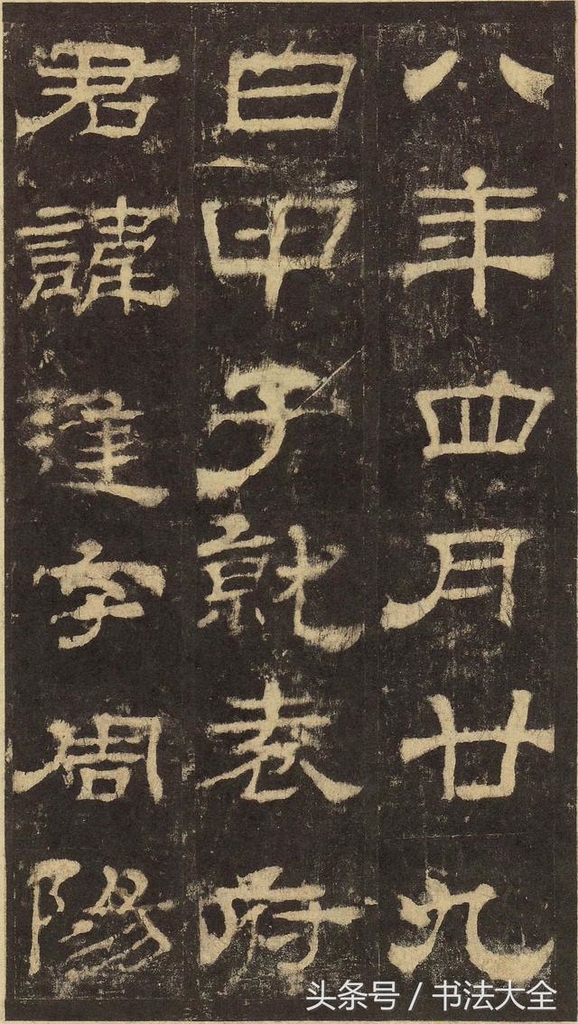 八年四月廿九
日甲子就袁府
君諱逢字周陽
头条号 / 书法大全